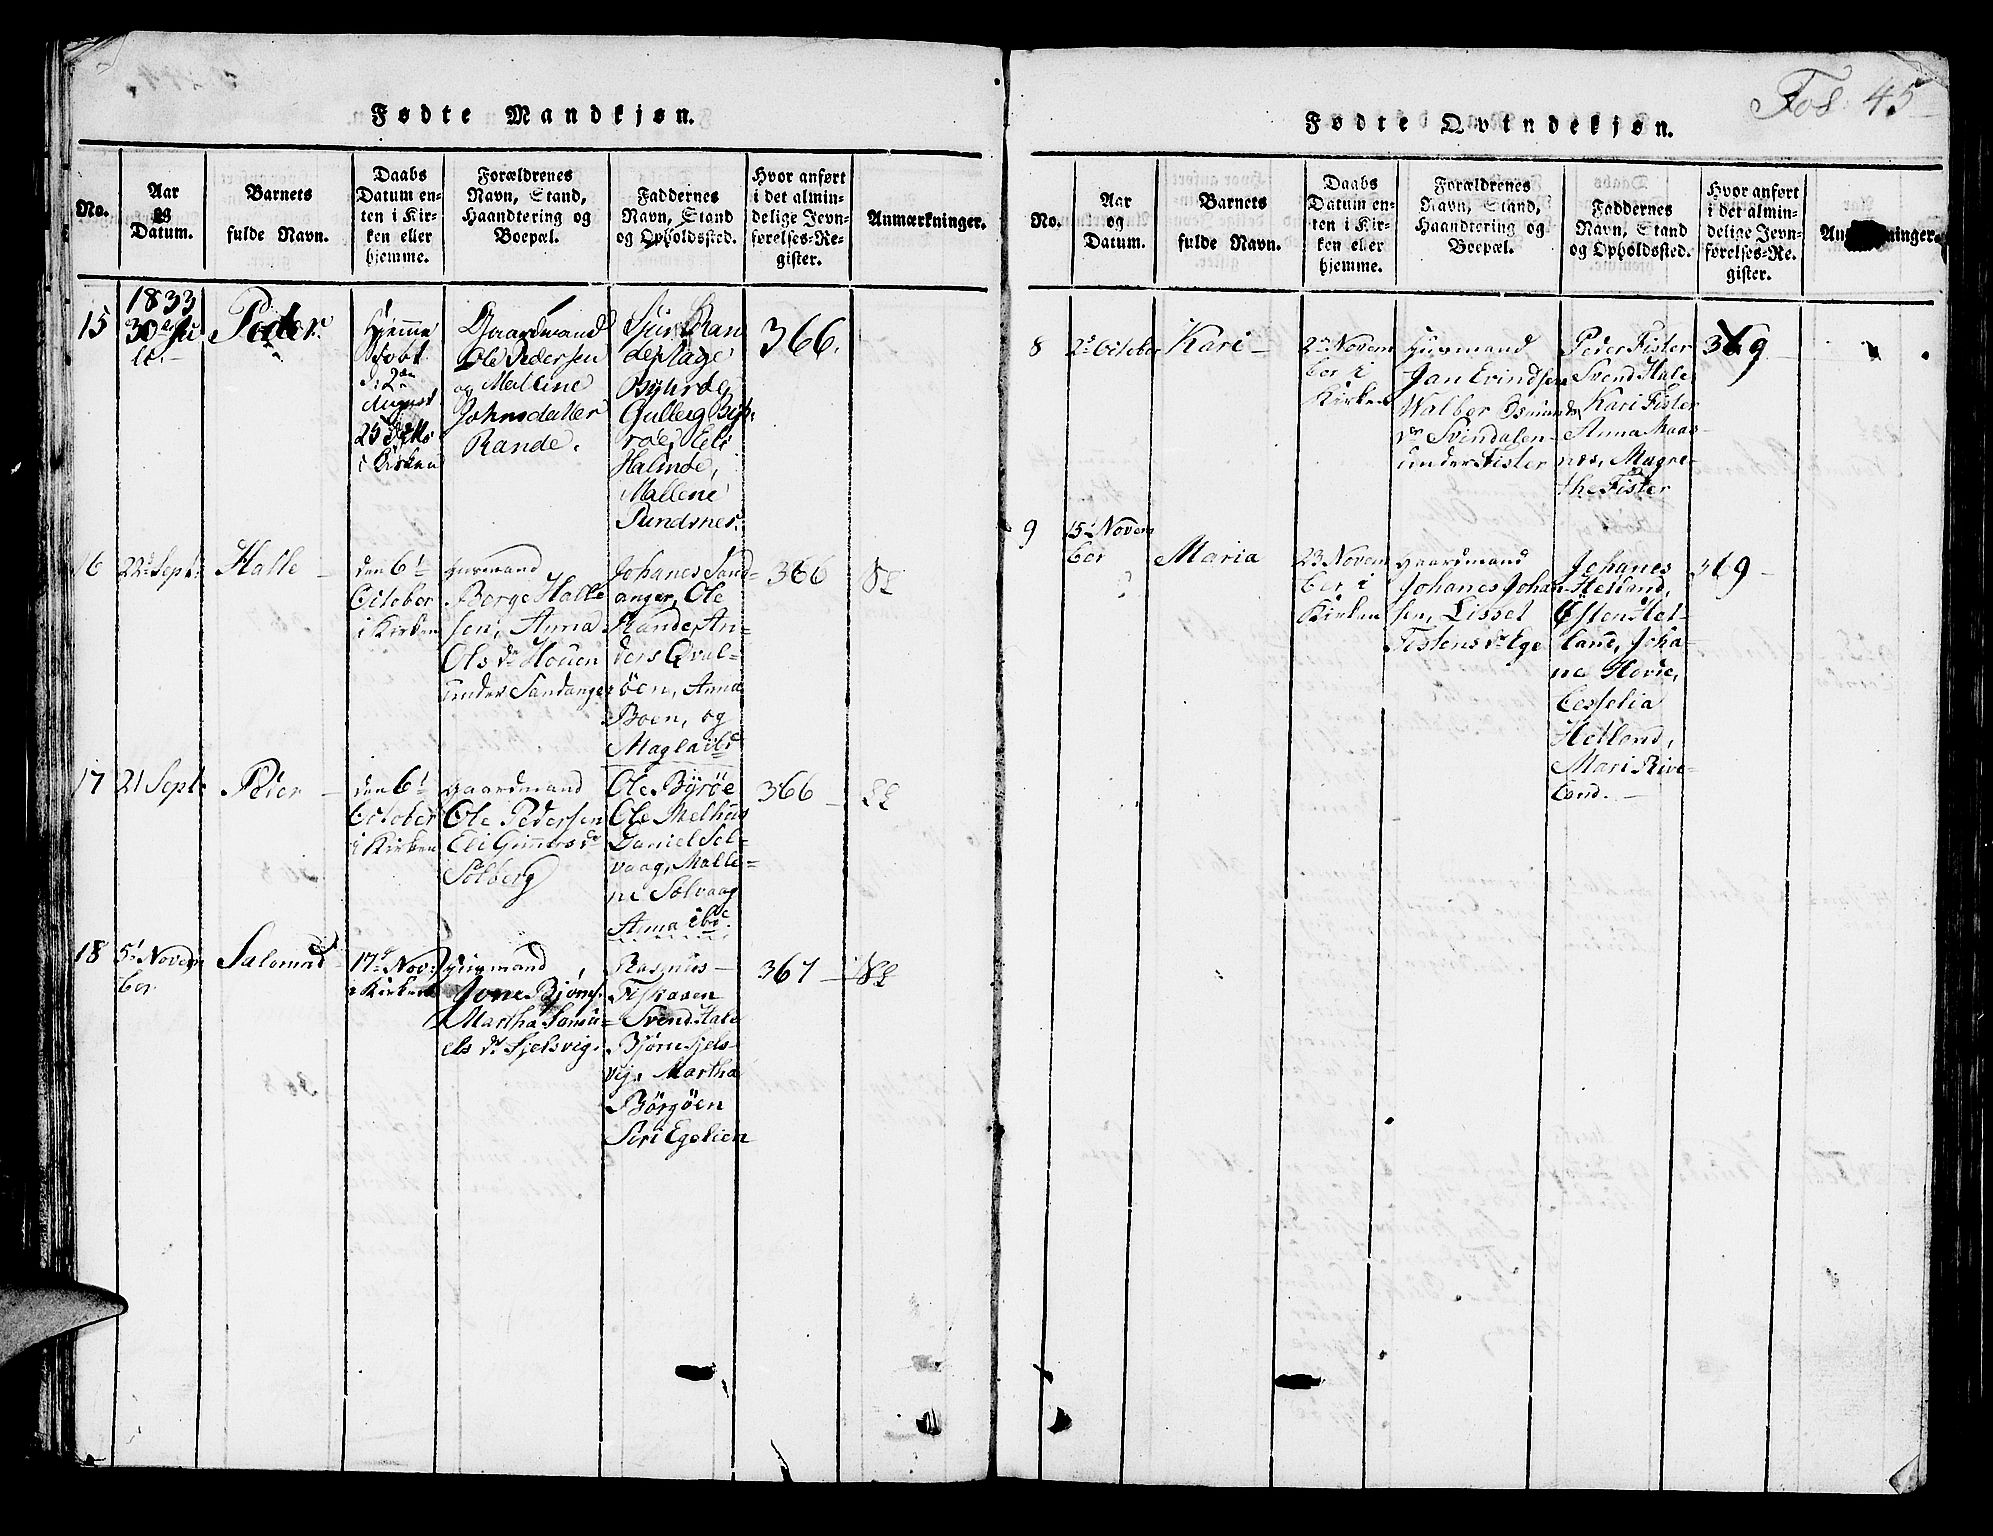 Fol. 45
Fødte Mandkjøn.
No.
Aar
og
Datum.
Barnets
fulde Navn.
Daabs
Datum en-
ten i Kir-
ken eller
hjemme.
Forældrenes
Navn, Stand,
Haandtering og
Boepæl.
Faddernes
Navn, Stand
og Opholdssted.
Hvor anført
i det almin-
delige Jevn-
førelses-Re-
gister.
Anmærkninger.
15
1833
30
Peder
Hjemme
Døbt
d. 2
August
25
i Kirken
Gaardmand
Ole Pedersen
og Mallene
Johnsdatter
Rande.
Sjur Ran
de
Byhrøe
Gulleig Byh-
røe,
Halsnøe,
Mallene
Pundsnes.
366.
16
22 Sept.
Halle
den 6
October
i Kirken
Husmand
Børge Halle
sen, Anna
Ols Dr Houen
under Sandanger
Johanes Sand-
anger, Ole
Rande, An-
ders Qval-
øen, Anna
Boen, og
366
17
21 Sept.
Peder
den 6
October
i Kirken
Gaardmand
Ole Pedersen
Eli
Solberg
Ole Byrøe
Ole Melhus
Daniel Sel-
vaag, Malle-
ne Selvaag
Anna ibd.
366
18
5 Novem
ber
Salomed
17 Nov.
i Kirken
Husmand
Jone Bjørns.
Martha Samu-
els dr Fjelsvig.
Rasmus
Fiskaaen
Svend Hale
Bjørn Fjels-
vig, Martha
Børgøen
Siri Egelien
367
Fødte Qvindekjøn.
No.
Aar
og
Datum.
Barnets
fulde Navn.
Daabs
Datum en-
ten i Kir-
ken eller
hjemme.
Forældrenes
Navn, Stand,
Haandtering og
Boepæl.
Faddernes
Navn, Stand
og Opholdssted.
Hvor anført
i det almin-
delige Jevn-
førelses-Re-
gister.
8
2 October
Kari
2 Novem
ber i
Kirken
Husmand
Jan Evindsen
Walbor Osmunds
Dr Svindalen
under Fister
Peder Fister
Svend Hale
Kari Fister
Anna Maas-
nes, Magre-
the Fister
369
9
15 Novem
ber
Maria
23 Novem
ber i
Kirken
Gaardmand
Johanes Johan-
sen, Lissel
Tistens Dr Ege
Johanes
Hetland,
Østen Het-
land, Joha-
ne Hovde,
Cesselia
Hetland,
Mari Rive-
land.
369